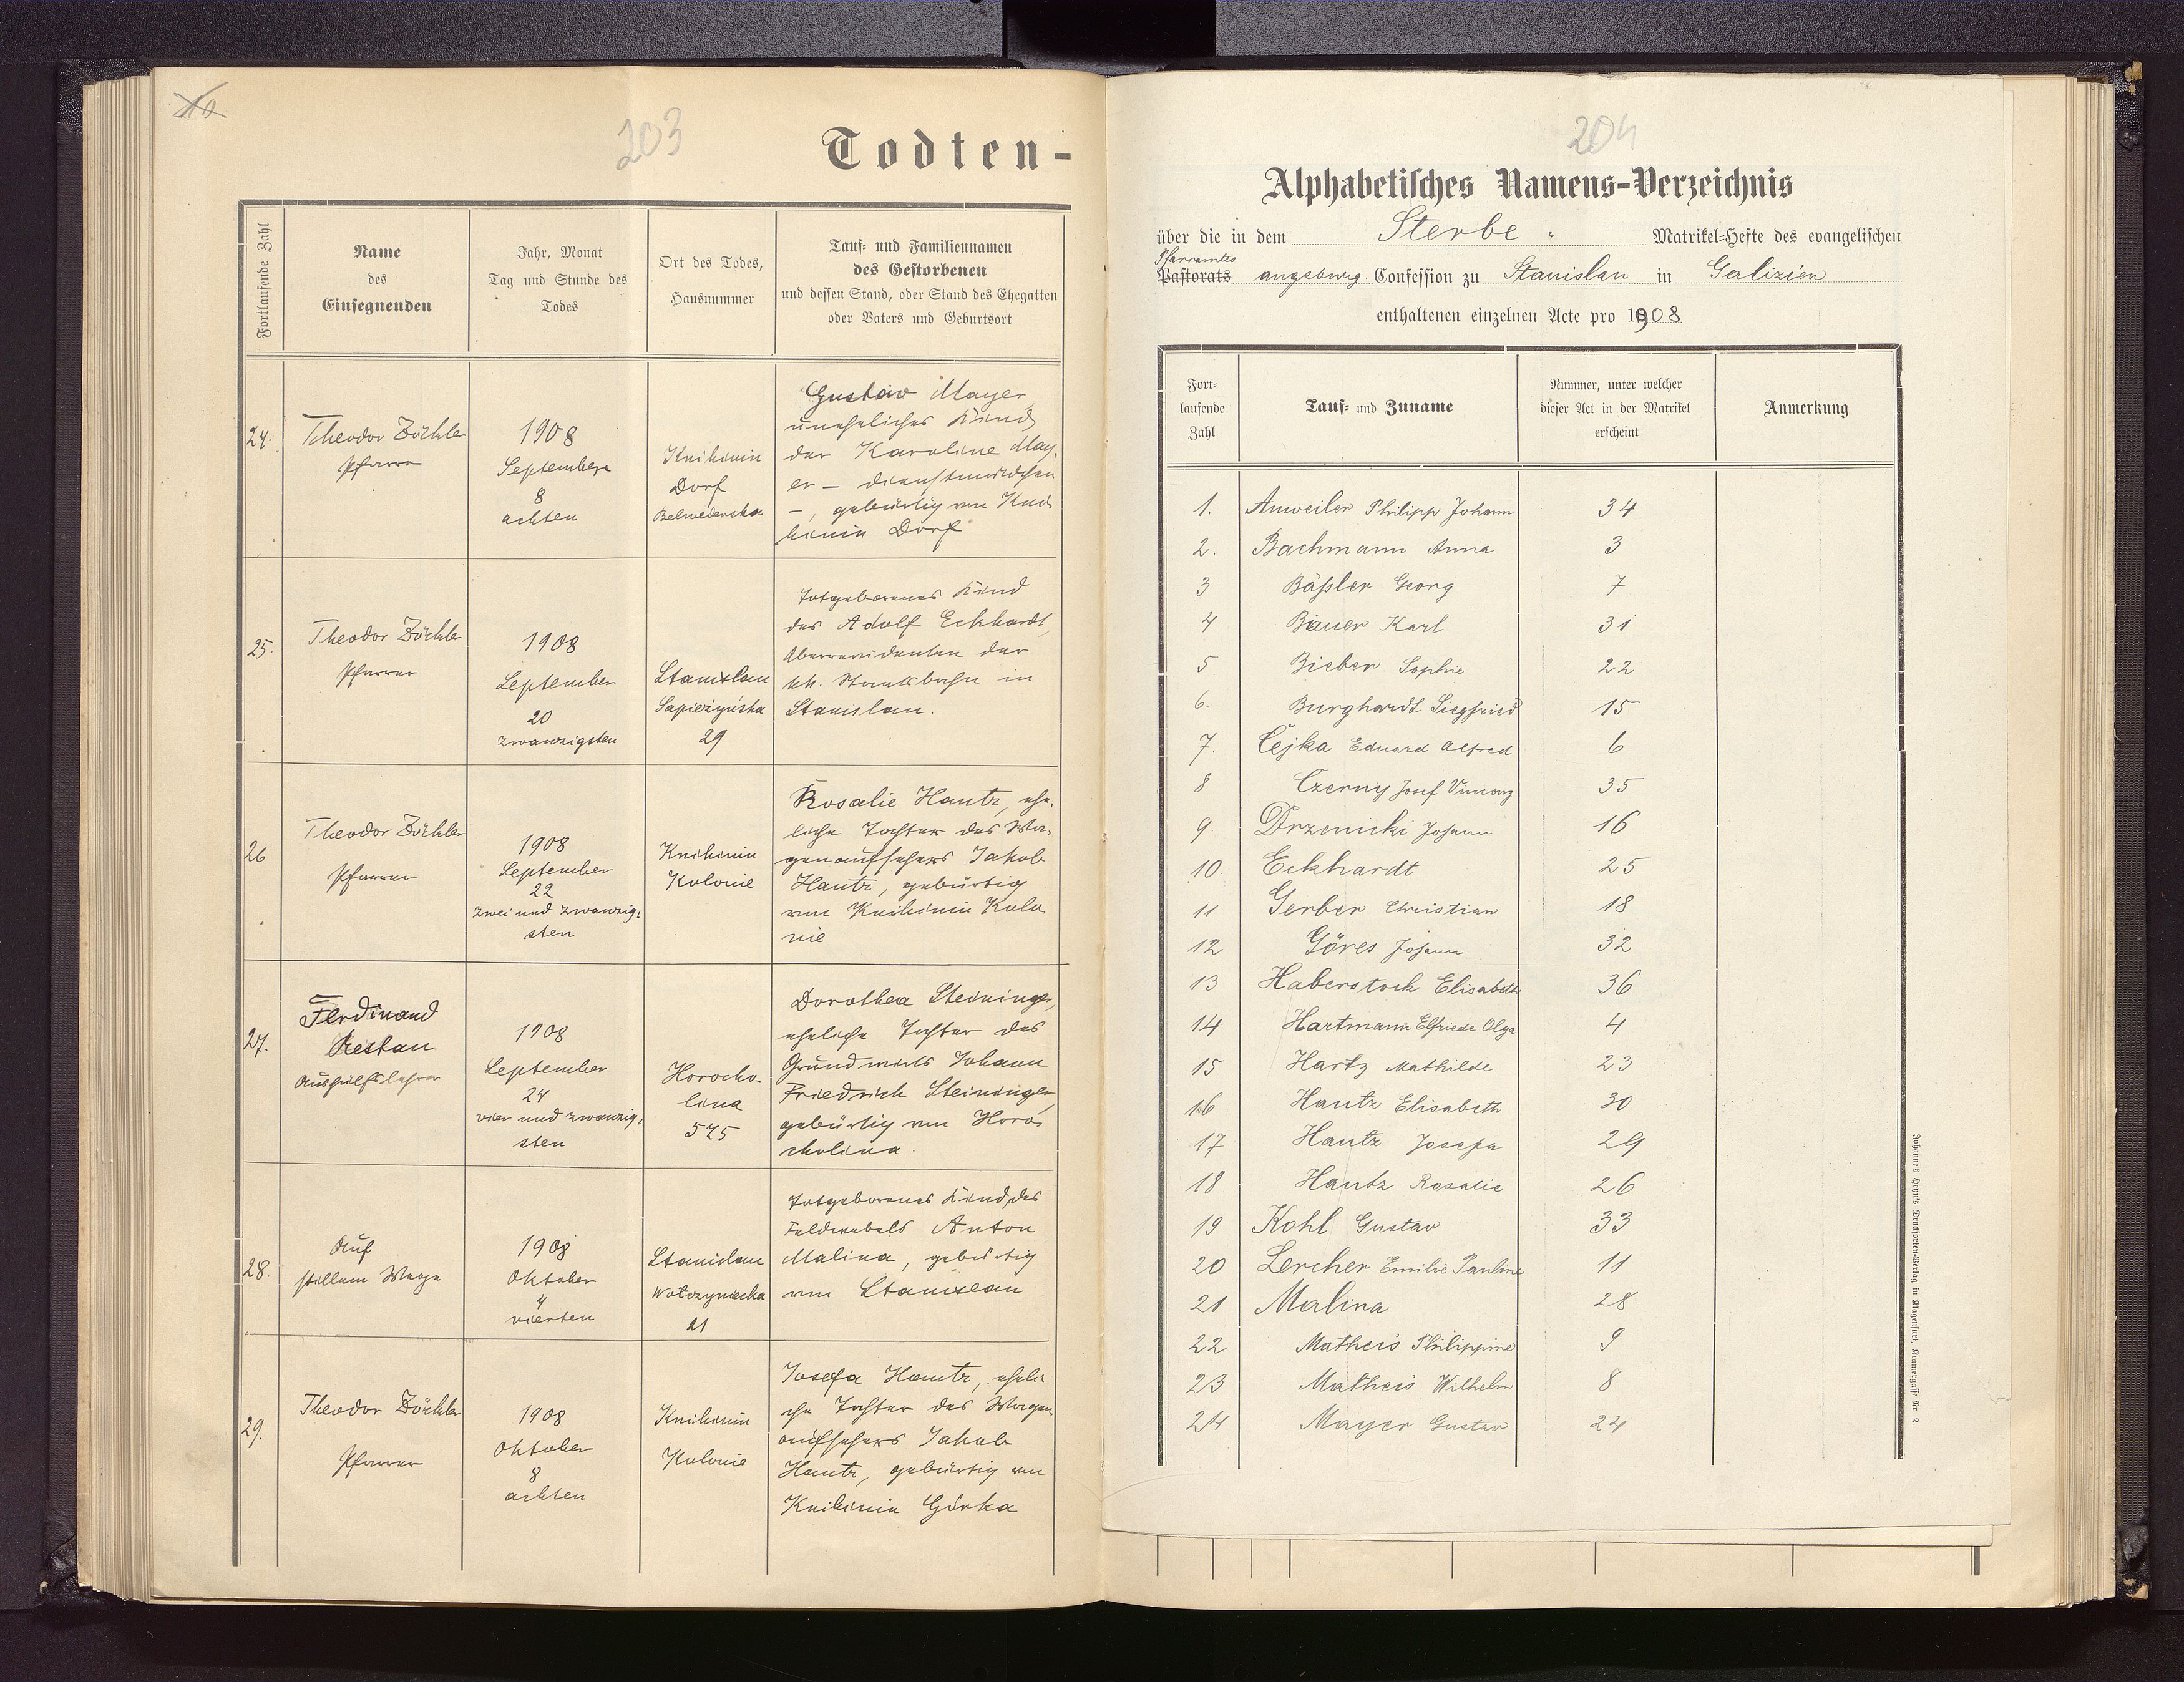 203
Todten-
Fortlaufende Zahl
Name
des
Einsegnenden
Jahr, Monat
Tag und Stunde des
Todes
Ort des Todes,
Hausnummer
Tauf- und Familiennamen
des Gestorbenen
und dessen Stand, oder Stand des Ehegatten
oder Vaters und Geburtsort
24.
Theodor Zöckler
Pfarrer
1908
September
8
achten
Knihinin
Dorf
Belwederska
Gustav Mayer
uneheliches Kind
der Karoline May-
er – Dienstmädchen
–, gebürtig von Kni-
hinin Dorf
25.
Theodor Zöckler
Pfarrer
1908
September
20
zwanzigsten
Stanislau
Sapieżyńska
29
Totgeborenes Kind
des Adolf Eckhardt,
der
kk. Staatsbahn in
Stanislau.
26
Theodor Zöckler
Pfarrer
1908
September
22
zwei und zwanzig-
sten
Knihinin
Kolonie
Rosalie Hautz, ehe-
liche Tochter des Wa-
genaufsehers Jakob
Hautz, gebürtig
von Knihinin Kolo-
nie
27.
Ferdinand
Restau
Aushülfslehrer
1908
September
24
vier und zwanzig-
sten
Horocho-
lina
575
Dorothea Steininger,
eheliche Tochter des
Grundwirts Johann
Friedrich Steininger,
gebürtig von Horo-
cholina.
28.
Auf
stillem Wege
1908
Oktober
4
vierten
Stanislau
Wołczyniecka
21
Totgeborenes Kind des
Feldwebels Anton
Malina, gebürtig
von Stanislau
29.
Theodor Zöckler
Pfarrer
1908
Oktober
8
achten
Knihinin
Kolonie
Josefa Hautz, eheli-
che Tochter des Wagen-
aufsehers Jakob
Hautz, gebürtig von
Knihinin Górka
204
Alphabetisches Namens-Verzeichnis
über die in dem Sterbe - Matrikel-Hefte des evangelischen
Pfarramtes
Pastorats augsburg. Confession zu Stanislau in Galizien
enthaltenen einzelnen Acte pro 1908
Fort-
laufende
Zahl
Tauf- und Zuname
Nummer, unter welcher
dieser Act in der Matrikel
erscheint
Anmerkung
1. Anweiler Philipp Johann 34
2. Bachmann Anna 3
3 Bäßler Georg 7
4 Bauer Karl 31
5 Bieber Sophie 22
6. Burghardt Siegfried 15
7. Čejka Eduard Alfred 6
8 Czerny Josef Vincenz 35
9. Drzenicki Johann 16
10. Eckhardt 25
11 Gerber Christian 18
12 Göres Johann 32
13 Haberstock Elisabeth 36
14 Hartmann Elfriede Olga 4
15 Hartz Mathilde 23
16 Hautz Elisabeth 30
17 Hautz Josefa 29
18 Hautz Rosalie 26
19 Kohl Gustav 33
20 Lercher Emilie Pauline 11
21 Malina 28
22 Matheis Philippine 9
23 Matheis Wilhelm 8
24 Mayer Gustav 24
Johannes Heyn's Drucksorten-Verlag in Klagenfurt, Kramergasse Nr. 2.